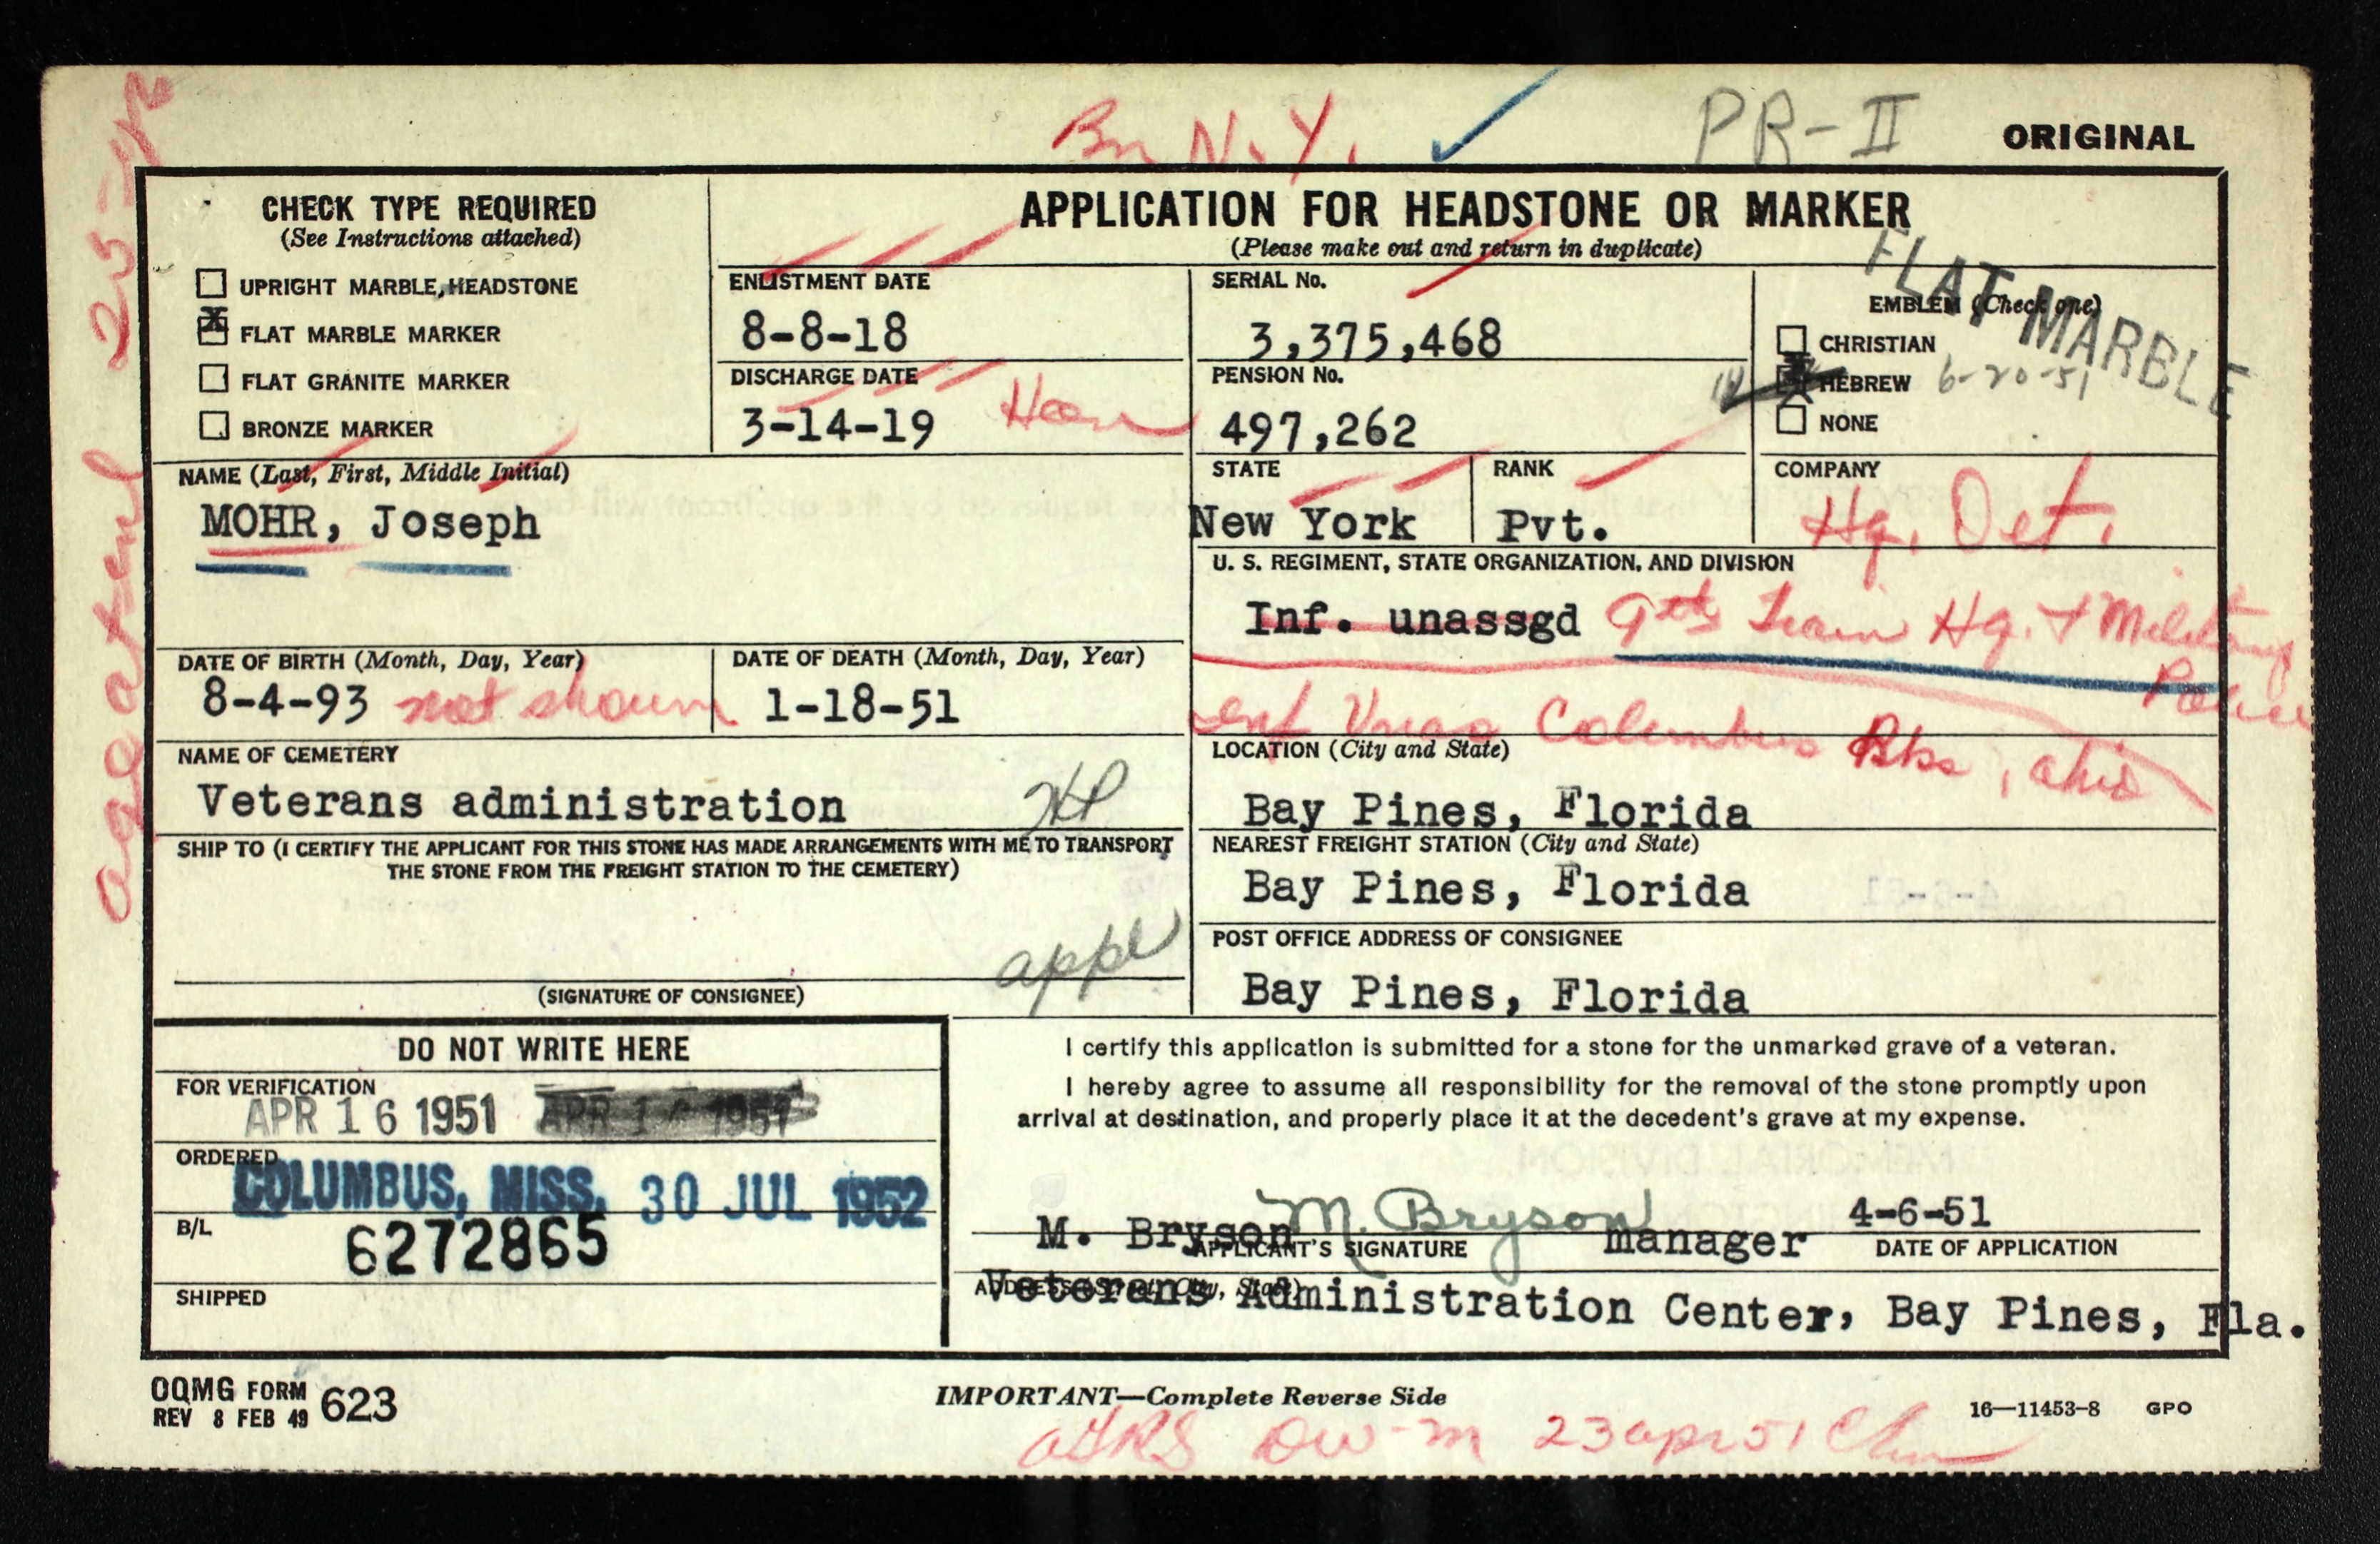 Bn N.Y. ✓ PR-II ORIGINAL
CHECK TYPE REQUIRED
(See Instructions attached)
☐ UPRIGHT MARBLE HEADSTONE
☒ FLAT MARBLE MARKER
☐ FLAT GRANITE MARKER
☐ BRONZE MARKER
APPLICATION FOR HEADSTONE OR MARKER
(Please make out and return in duplicate)
ENLISTMENT DATE
8-8-18
DISCHARGE DATE
3-14-19 Hon
SERIAL No.
3,375,468
PENSION No.
497,262
FLAT MARBLE
EMBLEM (Check one)
☐ CHRISTIAN
☒ HEBREW 6-20-51
☐ NONE
NAME (Last, First, Middle Initial)
MOHR, Joseph
STATE
New York
RANK
Pvt.
COMPANY
Hq. Det.
U. S. REGIMENT, STATE ORGANIZATION, AND DIVISION
Inf. unassgd 9th Train Hq. & Military
Police
Columbus Bks, Ohio
DATE OF BIRTH (Month, Day, Year)
8-4-93 not shown
DATE OF DEATH (Month, Day, Year)
1-18-51
NAME OF CEMETERY
Veterans administration
LOCATION (City and State)
Bay Pines, Florida
SHIP TO (I CERTIFY THE APPLICANT FOR THIS STONE HAS MADE ARRANGEMENTS WITH ME TO TRANSPORT
THE STONE FROM THE FREIGHT STATION TO THE CEMETERY)
appl
(SIGNATURE OF CONSIGNEE)
NEAREST FREIGHT STATION (City and State)
Bay Pines, Florida
POST OFFICE ADDRESS OF CONSIGNEE
Bay Pines, Florida
DO NOT WRITE HERE
FOR VERIFICATION
APR 16 1951
ORDERED
COLUMBUS, MISS. 30 JUL 1952
B/L
6272865
SHIPPED
I certify this application is submitted for a stone for the unmarked grave of a veteran.
I hereby agree to assume all responsibility for the removal of the stone promptly upon
arrival at destination, and properly place it at the decedent's grave at my expense.
M. Bryson M. Bryson manager 4-6-51
APPLICANT'S SIGNATURE DATE OF APPLICATION
ADDRESS (Street, City, State)
Veterans Administration Center, Bay Pines, Fla.
OQMG FORM 623
REV 8 FEB 49
IMPORTANT—Complete Reverse Side
16—11453-8 GPO
23 apr 51
age at enl 25-